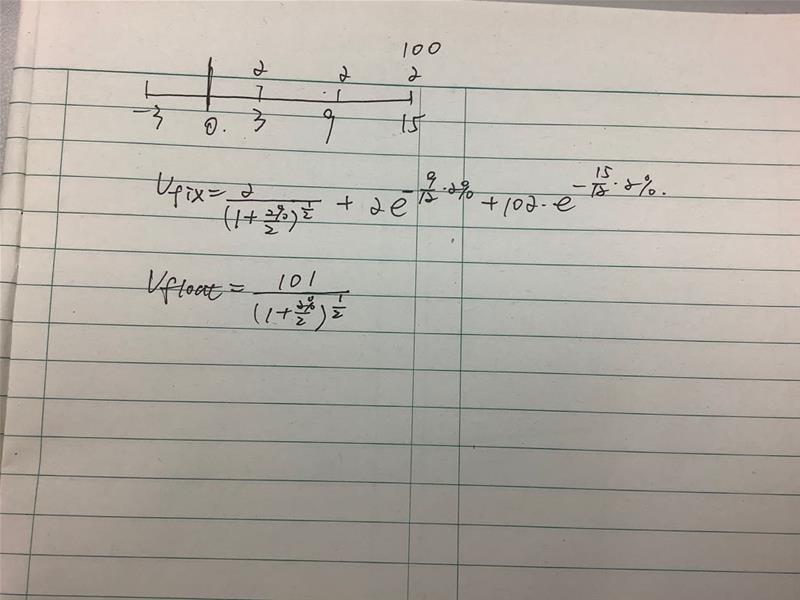 100
2 2 2
-3 0. 3 9 15
Vfix = 2/(1+2%/2)^(1/2) + 2e^(-9/12·2%) + 102·e^(-15/12·2%).
Vfloat = 101/(1+2%/2)^(1/2)